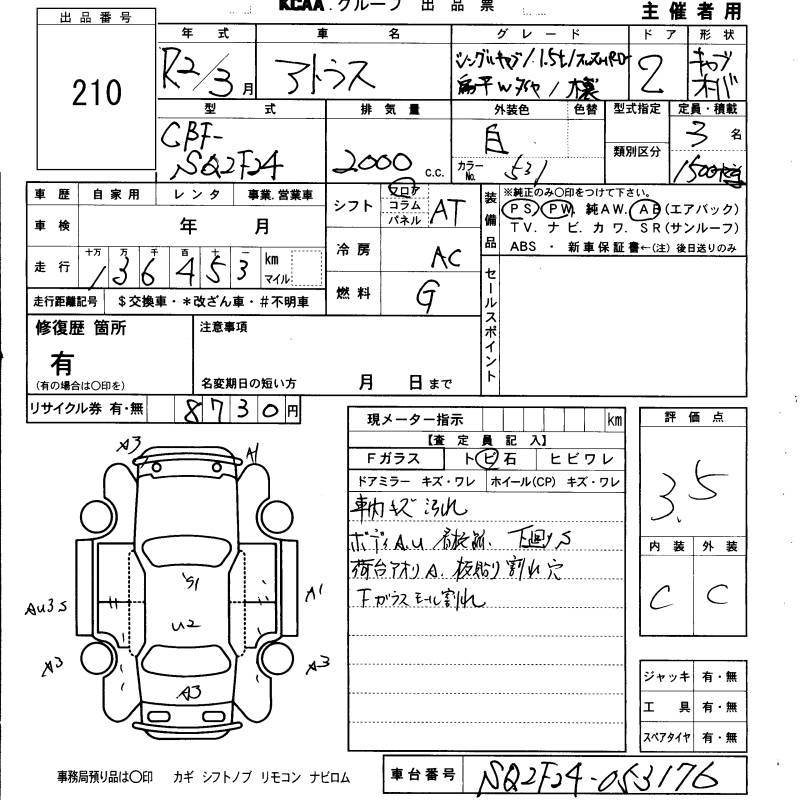 KCAA.グループ 出品票
主催者用
出品番号
210
年式 車名 グレード ドア 形状
R2/3月 アトラス シングルキャブ/1.5t/フルスーパーロー 2 キャブオーバ
扁平Wタイヤ/木製
型式 排気量 外装色 色替 型式指定 定員・積載
CBF-SQ2F24 2000 C.C. 白 カラーNo. 531 類別区分 3名
1500
車歴 自家用 レンタ 事業.営業車
車検 年 月
走行 十万 万 千 百 十 一 136453 km マイル
走行距離記号 $交換車・*改ざん車・#不明車
シフト フロア コラム パネル AT
冷房 AC
燃料 G
装備品 ※純正のみ〇印をつけて下さい。
PS PW. 純AW. AB(エアバック)
TV. ナビ. カワ. SR(サンルーフ)
ABS ・ 新車保証書←(注)後日送りのみ
セールスポイント
修復歴 箇所
有
(有の場合は〇印を)
注意事項
名変期日の短い方 月 日まで
リサイクル券 有・無 8730円
現メーター指示 km
【査定員記入】
Fガラス トビ石 ヒビワレ
ドアミラー キズ・ワレ ホイール(CP) キズ・ワレ
車内キズ 汚れ
ボディA.U 有 下回りS
荷台アオリA. 板貼り割れ穴
Fガラスモール割れ
評価点
3.5
内装 外装
C C
A3 A1
S1
Au3S A1
U2
A3 A3
A3
ジャッキ 有・無
工具 有・無
スペアタイヤ 有・無
事務局預り品は〇印 カギ シフトノブ リモコン ナビロム
車台番号 SQ2F24-053176